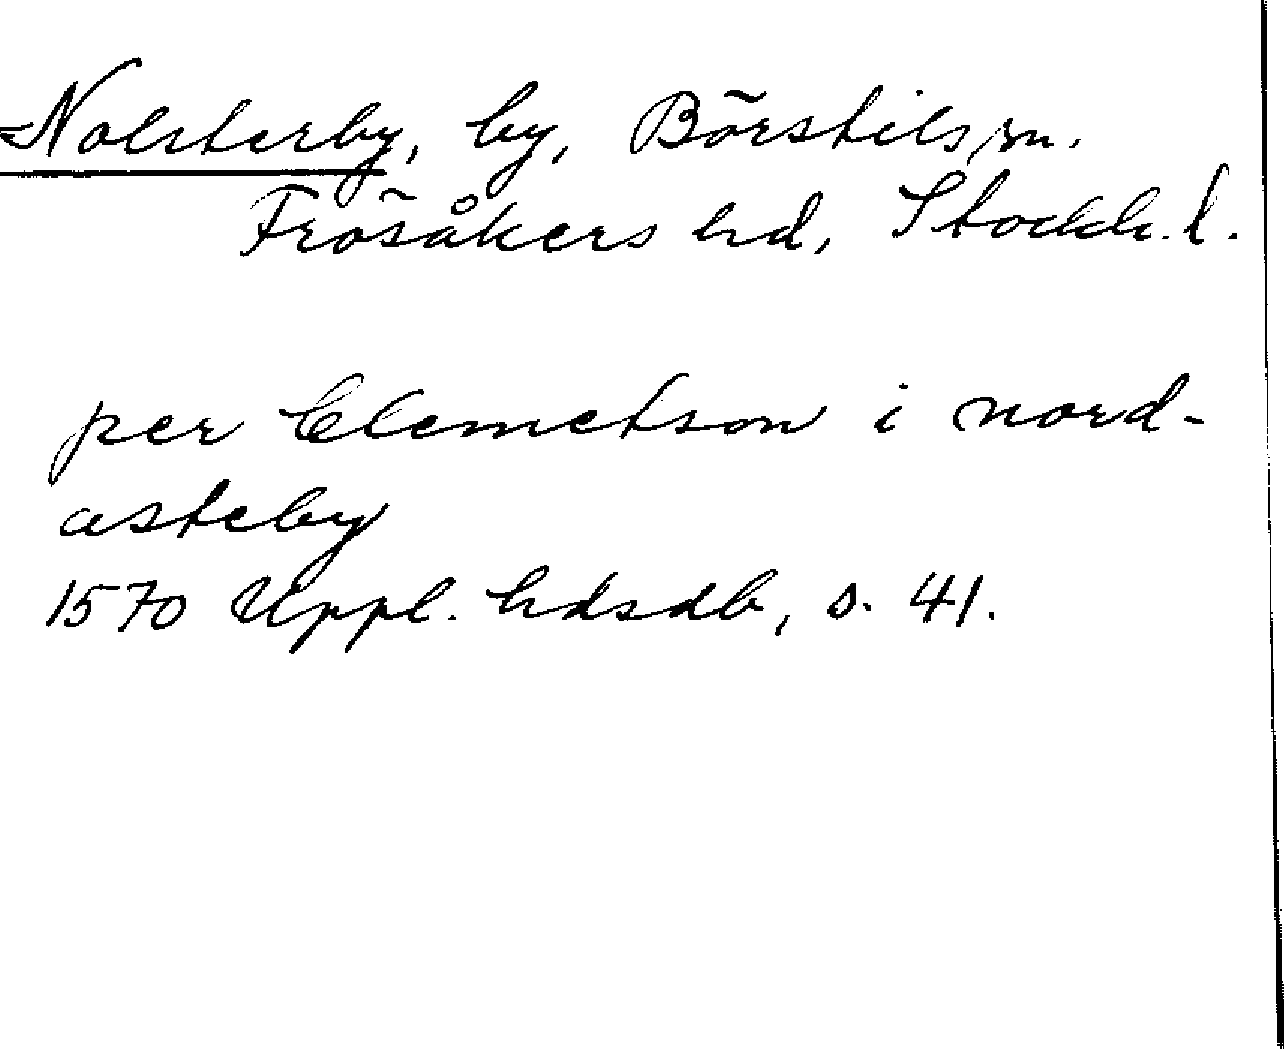 Nolsterby, by, Börstils sn.
Frösåkers hd, Stockh. l.
per Clemetson i nord-
asteby
1570 Uppl. hdsdb, s. 41.